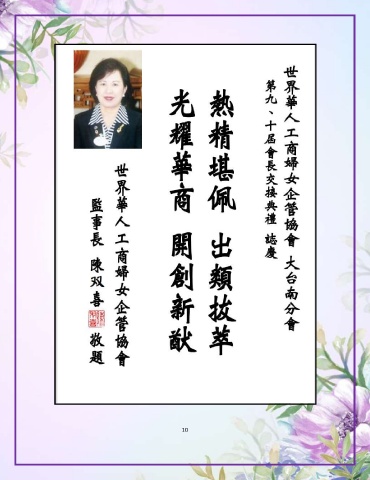 世界華人工商婦女企管協會 大台南分會
第九、十屆會長交接典禮 誌慶
熱精堪佩 出類拔萃
光耀華商 開創新猷
世界華人工商婦女企管協會
監事長 陳双喜 敬題
10